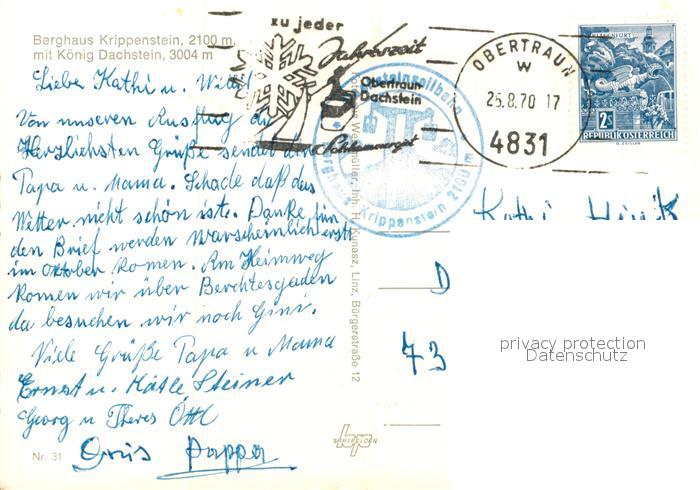 Berghaus Krippenstein, 2100 m,
mit König Dachstein, 3004 m
zu jeder
Jahreszeit
Obertraun
Dachstein
Salzkammergut
OBERTRAUN
W
26.8.70 17
4831
KLAGENFURT
2S
REPUBLIK ÖSTERREICH
Dachsteinseilbahn
Berghaus Krippenstein 2100 m
Inh. H. Kunasz, Linz, Bürgerstraße 12
Lieber Kathi u. Willi!
Von unseren Ausflug die
Herzlichsten Grüße sendet dir
Papa u. Mama. Schade daß das
Wetter nicht schön ist. Danke für
den Brief werden Warscheinlich erst
im Oktober komen. Am Heimweg
komen wir über Berchtesgaden
da besuchen wir noch Gini.
Viele Grüße Papa u Mama
Ernst u. Kätle Steiner
Georg u Theres Öttl
Pappa
Kathi
D
73
privacy protection
Datenschutz
Nr. 31